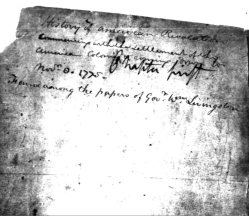 History of American Revolution
Commencing with the settlement of the
American Colonies
Chapter first
Nov. 8. 1775.
Found among the papers of Gov. Wm Livingston